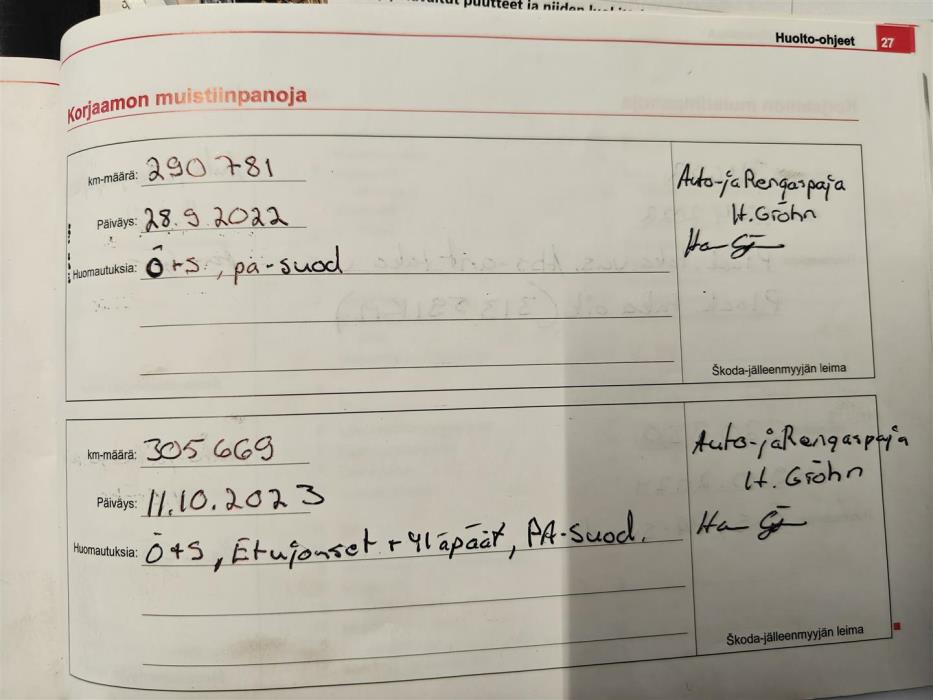 puutteet ja niiden
Huolto-ohjeet 27
Korjaamon muistiinpanoja
km-määrä: 290 781
Päiväys: 28.9.2022
Huomautuksia: Ö+S, pa-suod
Auto-ja Rengaspaja
H. Gröhn
Škoda-jälleenmyyjän leima
km-määrä: 305 669
Päiväys: 11.10.2023
Huomautuksia: Ö+S, Etujouset + yläpäät, PA-Suod.
Auto-ja Rengaspaja
H. Gröhn
Škoda-jälleenmyyjän leima